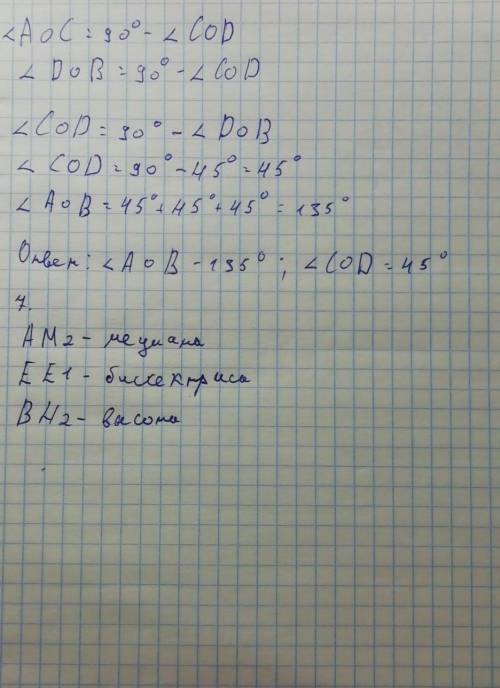 ∠AOC = 90° - ∠COD
∠DOB = 90° - ∠COD
∠COD = 90° - ∠DOB
∠COD = 90° - 45° = 45°
∠AOB = 45° + 45° + 45° = 135°
Ответ: ∠AOB - 135° ; ∠COD = 45°
7.
AM2 - медиана
EE1 - биссектриса
BH2 - высота